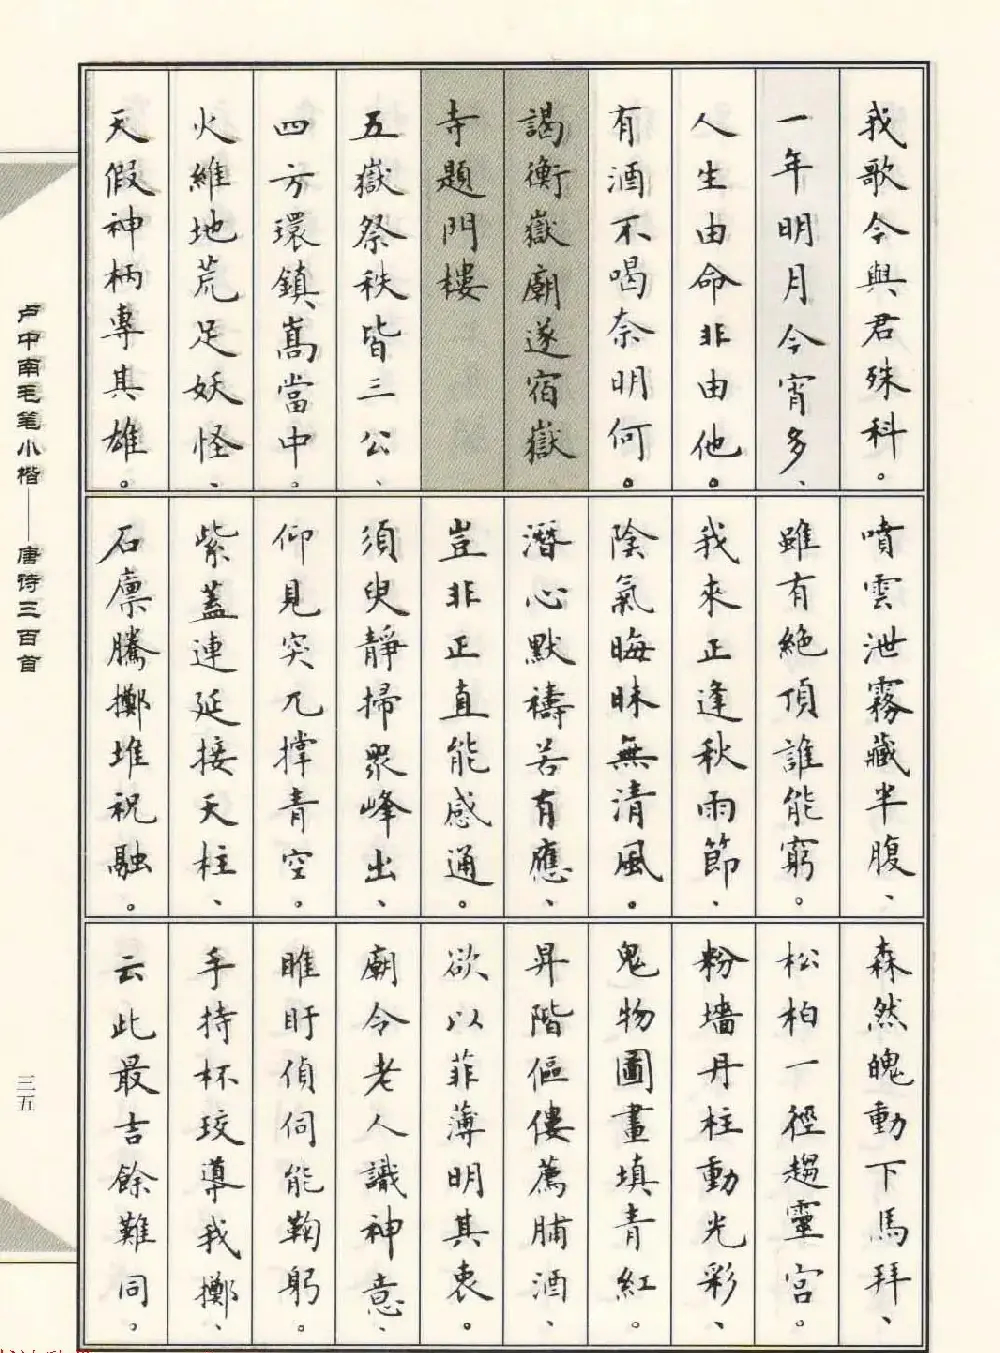 我歌今與君殊科。
一年明月今宵多、
人生由命非由他。
有酒不喝奈明何。
謁衡嶽廟遂宿嶽
寺題門樓
五嶽祭秩皆三公、
四方環鎮嵩當中。
火維地荒足妖怪、
天假神柄專其雄。
噴雲泄霧藏半腹、
雖有絕頂誰能窮。
我來正逢秋雨節、
陰氣晦昧無清風。
潛心默禱若有應、
豈非正直能感通。
須臾靜掃眾峰出、
仰見突兀撐青空。
紫蓋連延接天柱、
石廩騰擲堆祝融。
森然魄動下馬拜、
松柏一徑趨靈宮。
粉墻丹柱動光彩、
鬼物圖畫填青紅。
昇階傴僂薦脯酒、
欲以菲薄明其衷。
廟令老人識神意、
睢盱偵伺能鞠躬。
手持杯珓導我擲、
云此最吉餘難同。
卢中南毛笔小楷——唐诗三百首
三五